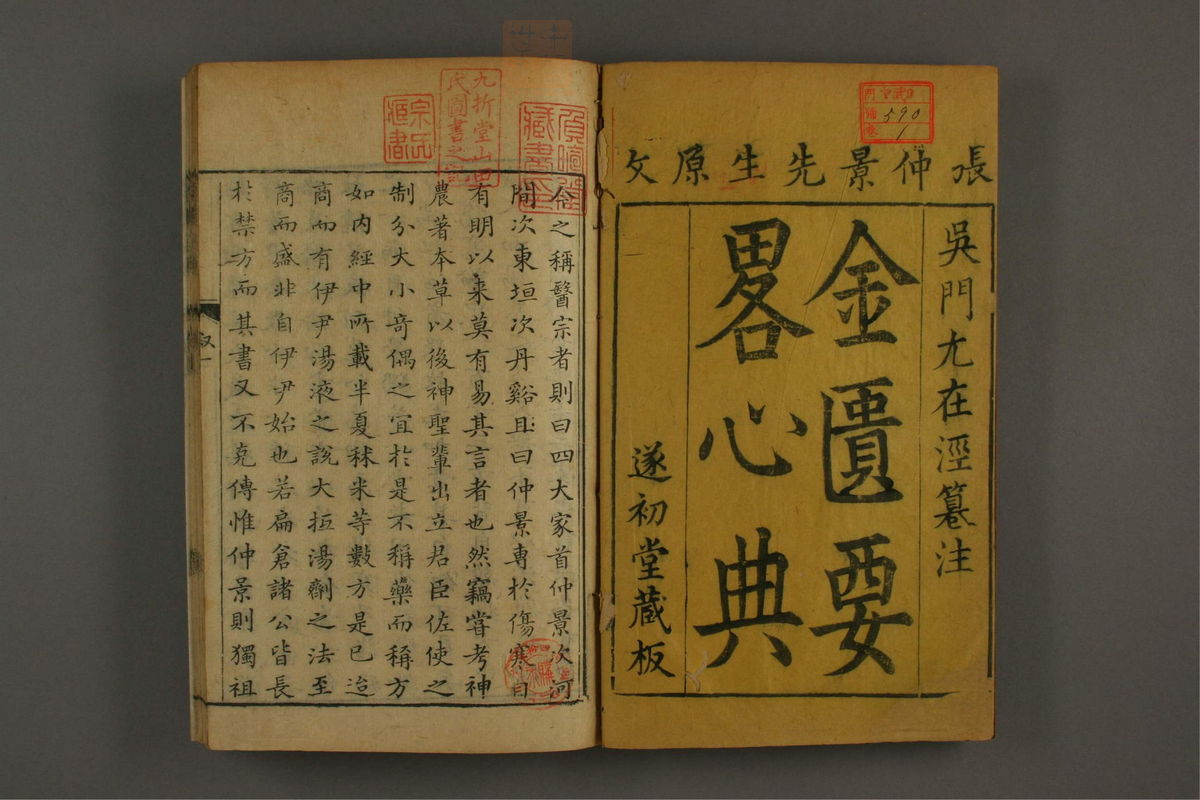 張仲景先生原文
吳門尤在涇纂注
金匱要
畧心典
遂初堂藏板
590
1
九折堂山田
氏圖書之記
宗氏
藏書
今之稱醫宗者則曰四大家首仲景次河
間次東垣次丹谿且曰仲景專於傷寒自
有明以来莫有易其言者也然竊嘗考神
農著本草以後神聖輩出立君臣佐使之
制分大小奇偶之宜於是不稱藥而稱方
如内經中所載半夏秫米等數方是已迨
商而有伊尹湯液之說大抵湯劑之法至
商而盛非自伊尹始也若扁倉諸公皆長
於禁方而其書又不克傳惟仲景則獨祖
叙
一